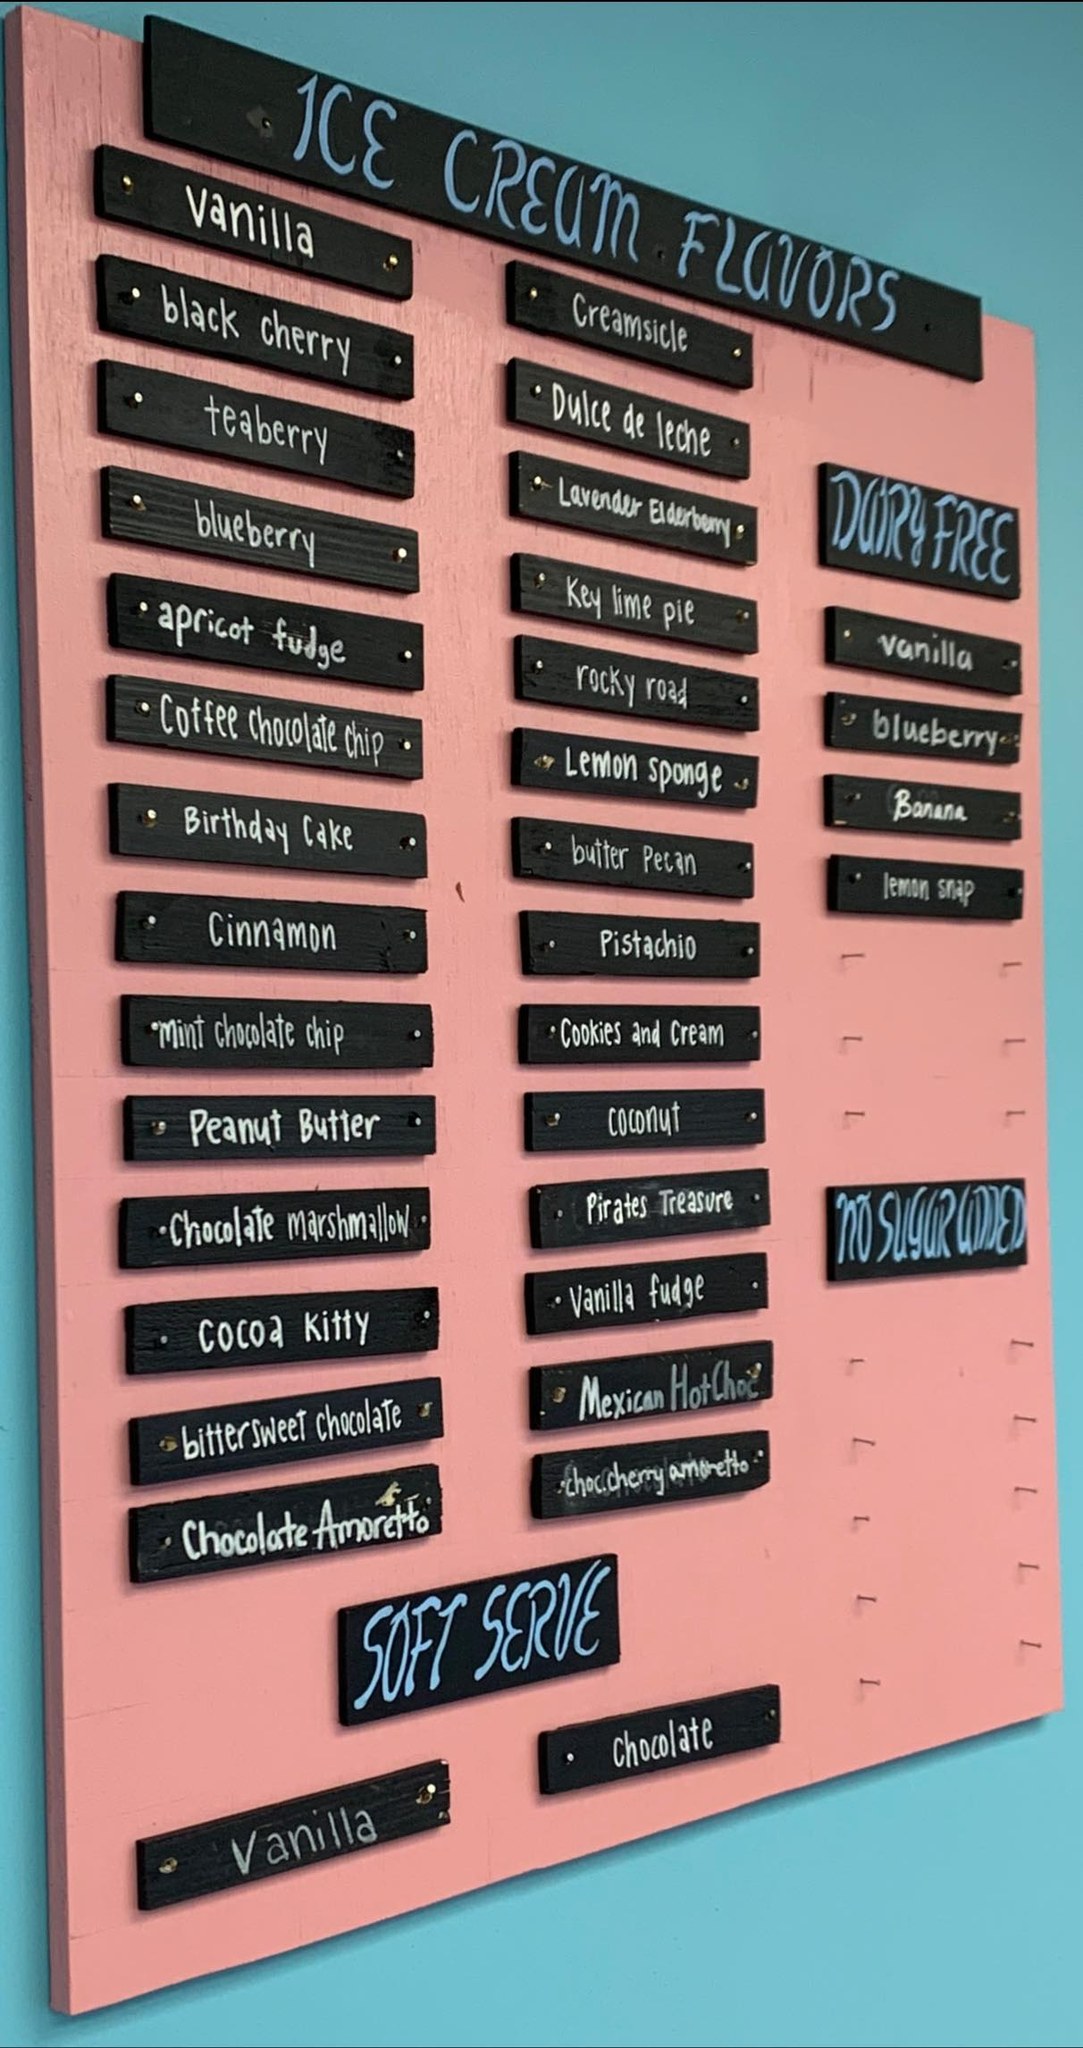 ICE CREAM FLAVORS
vanilla
black cherry
teaberry
blueberry
apricot fudge
Coffee chocolate chip
Birthday Cake
Cinnamon
mint chocolate chip
Peanut Butter
Chocolate marshmallow
Cocoa Kitty
bittersweet chocolate
Chocolate Amoretto
Creamsicle
Dulce de leche
Lavender Elderberry
Key lime pie
rocky road
Lemon sponge
butter Pecan
Pistachio
Cookies and Cream
coconut
Pirates Treasure
Vanilla fudge
Mexican Hot Choc
choc.cherry amoretto
DAIRY FREE
vanilla
blueberry
Banana
lemon snap
NO SUGAR ADDED
SOFT SERVE
Vanilla
Chocolate